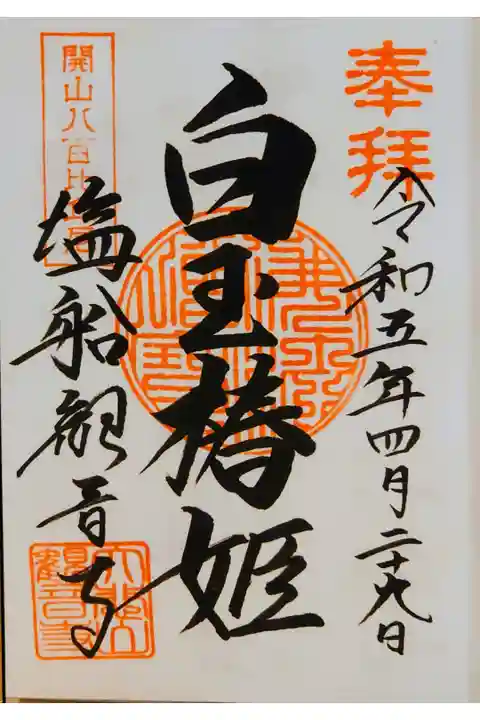 奉拝
令和五年四月二十九日
白玉椿姫
開山八百比丘尼
塩船観音寺